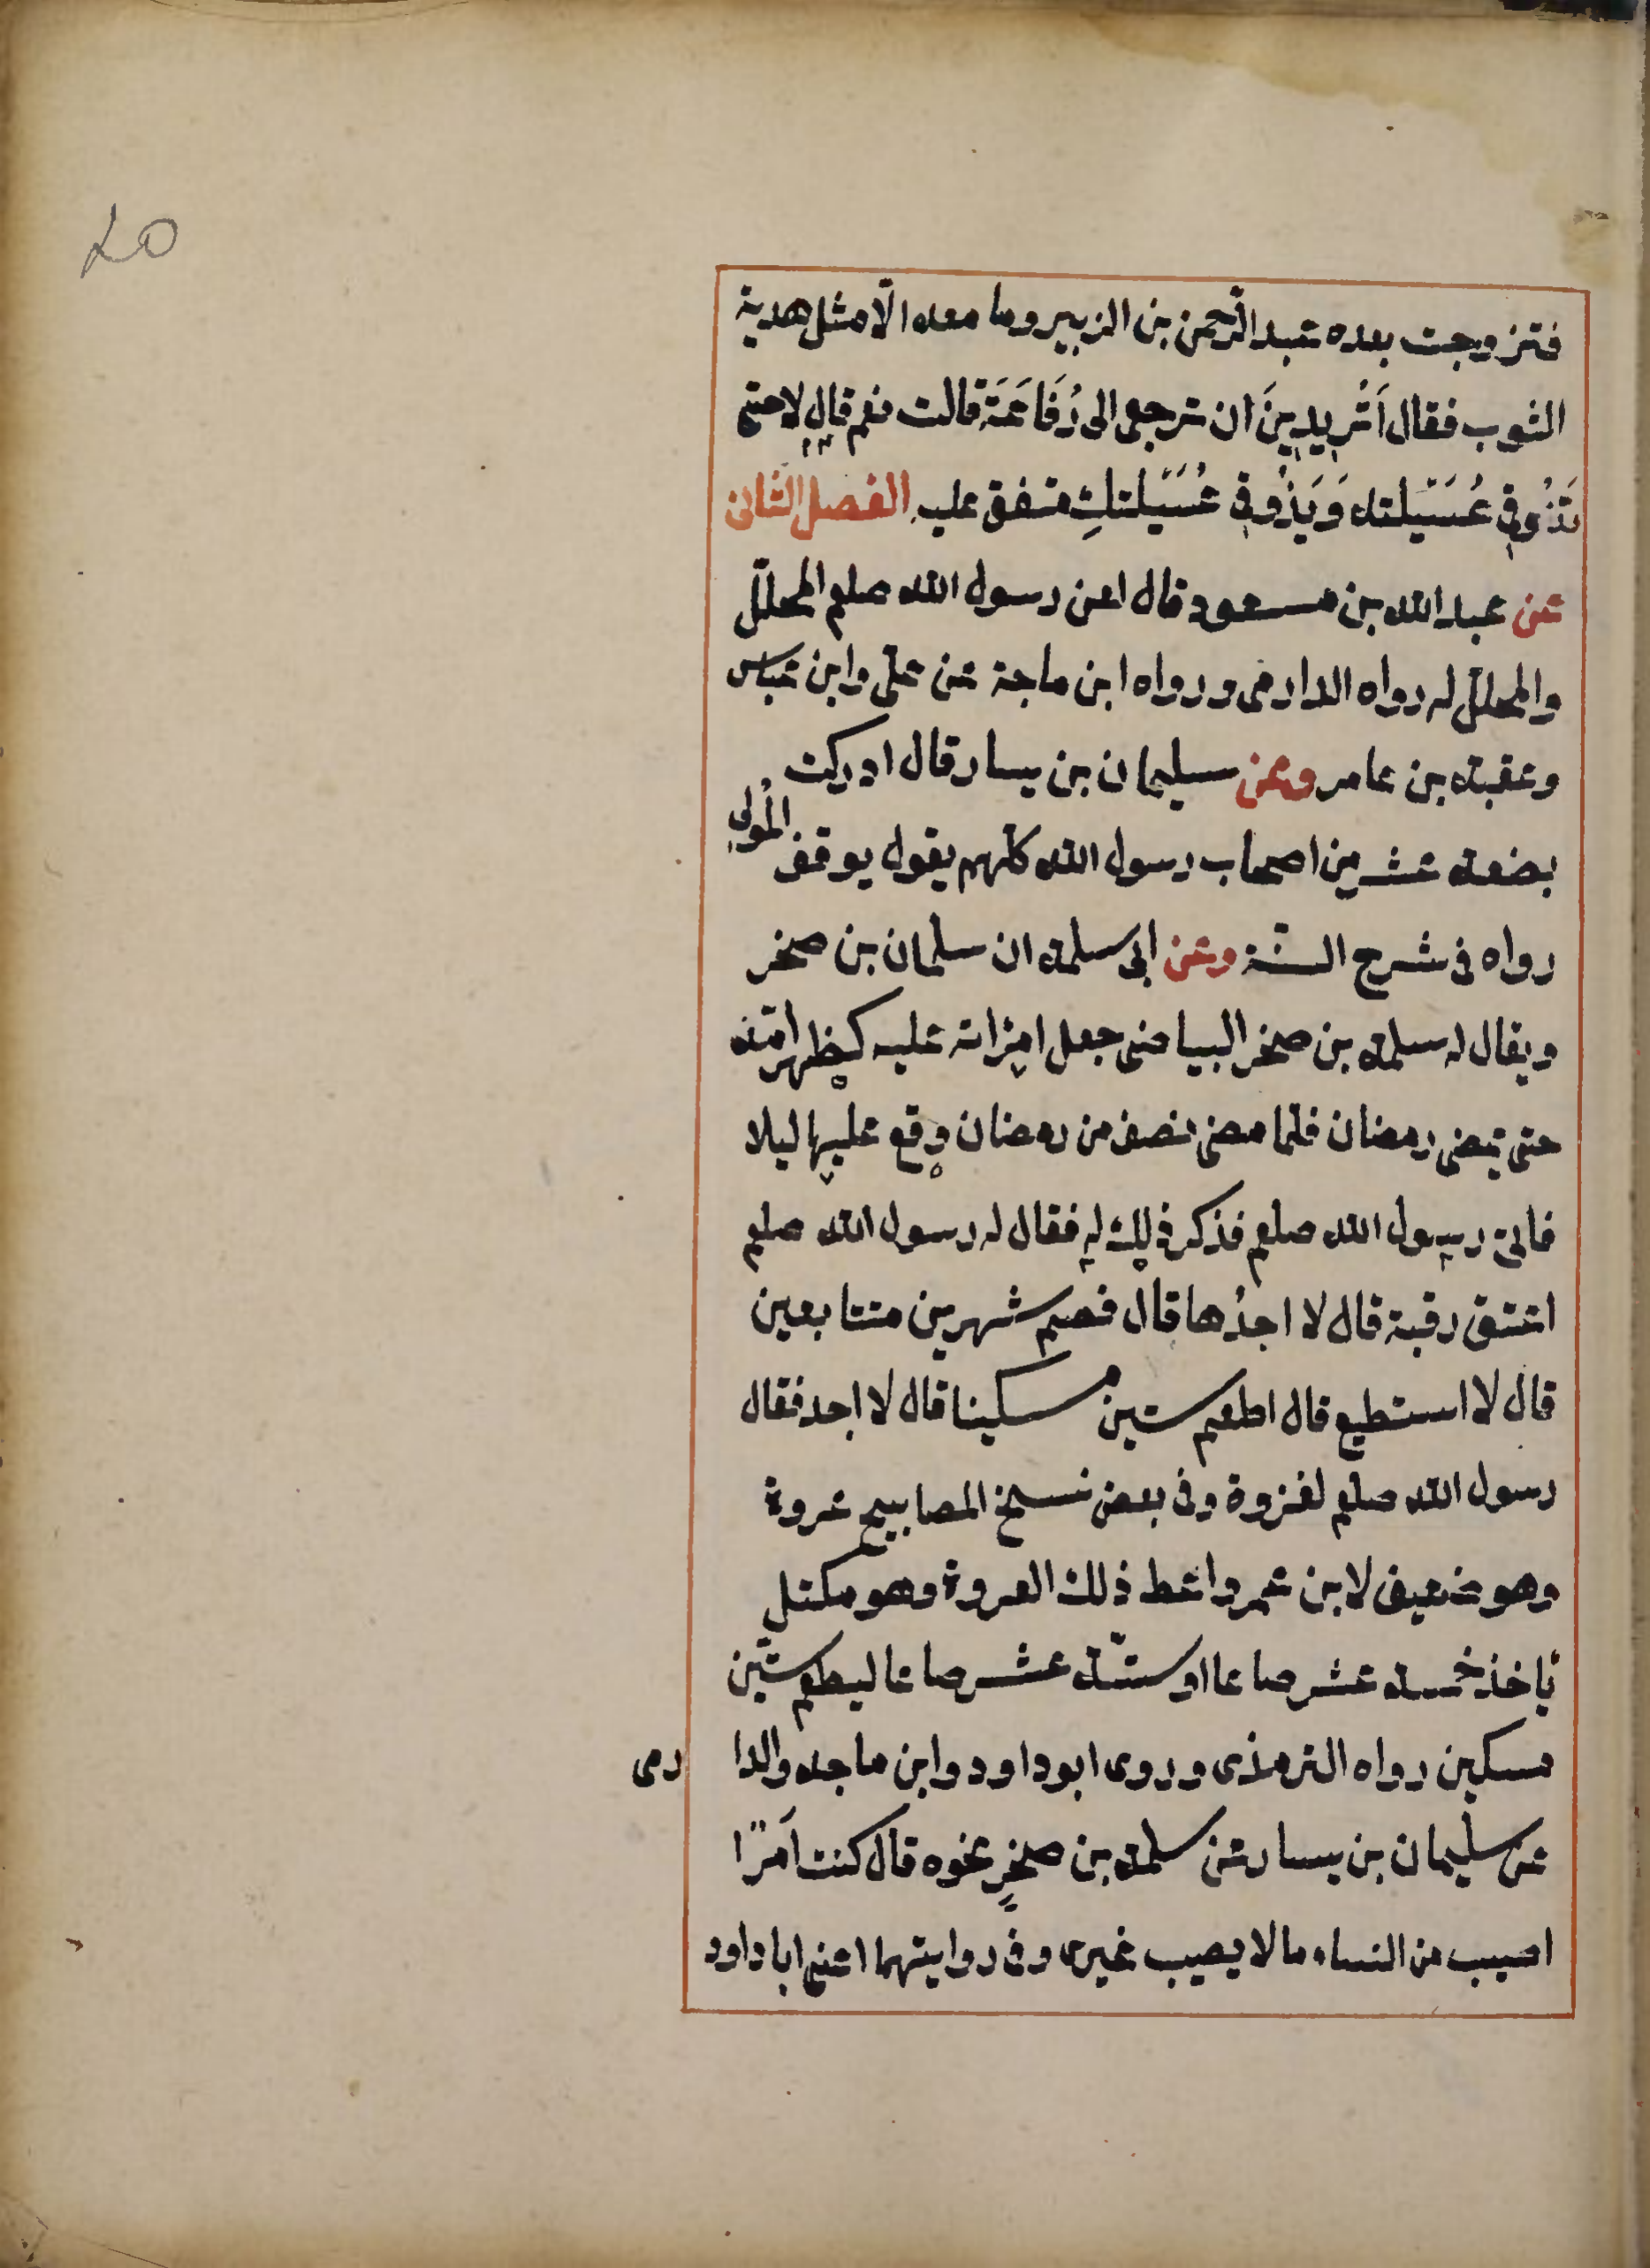 ٤٥
فتزوجت بعده عبد الرّحمن بن الزبير وما معه الّا مثل هدية
الثوب فقال أَتُريدينَ ان ترجعى الى رُفَاعَةَ قالت نعم قال لا حتى
تَذُوقى عُسَيْلته وَيَذُوقى عُسَيْلتكِ متفق عليه الفصل الثانى
عن عبد الله بن مسعود قال لعن رسول الله صلعم المحلّل
والمحلّل له رواه الدارمى ورواه ابن ماجة عن علىّ وابن عباس
وعقبه بن عامر وعن سليمان بن يسار قال ادركت
بضعه عشر من اصحاب رسول الله كلّهم يقول يوقف المُولى
رواه فى شرح السنّة وعن ابى سلمه ان سلمان بن صخر
ويقال له سلمه بن صخر البياضى جعل امراته عليه كظهر امّه
حتى يمضى رمضان فلمّا مضى نصف من رمضان وقع عليها ليلا
فاتى رسول الله صلعم فذكر ذلك له فقال له رسول الله صلعم
اعتق رقبة قال لا اجدُها قال فصم شهرين متتابعين
قال لا استطيع قال اطعم ستين مسكينا قال لا اجد فقال
رسول الله صلعم لغزوة وفى بعض نسخ المصابيح عروة
وهو ضعيف لابن عمرو اعط ذلك العروة وهو مكتل
يأخذ خمسه عشر صاعا او ستّه عشر صاعا ليطعم ستّين
مسكين رواه الترمذى وروى ابو داود وابن ماجه والدا رمى
عن سليمان بن يسار عن سلمه بن صخرٍ نحوه قال كنت امرًا
اصيب من النساء ما لا يصيب غيرى وفى روايتهما اعنى ابا داود